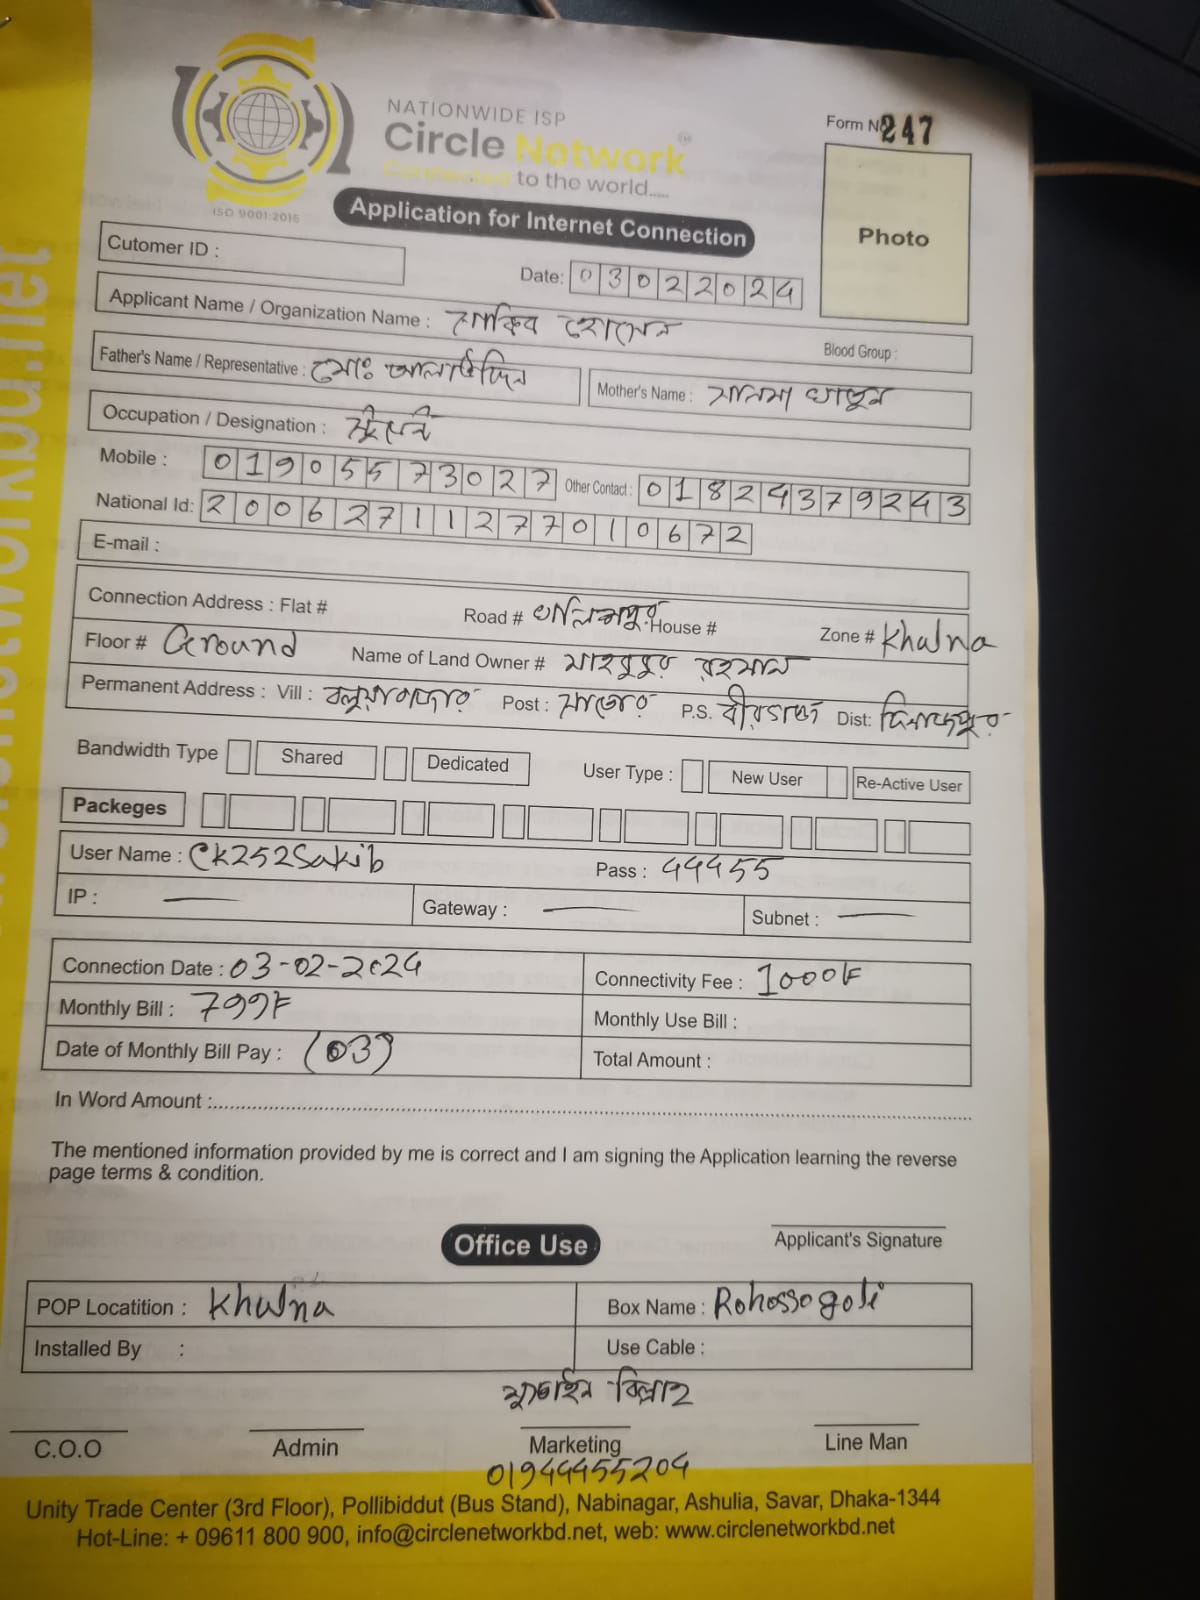 NATIONWIDE ISP
Circle Network
Connected to the world.....
ISO 9001:2015
Form No 247
Photo
Application for Internet Connection
Cutomer ID :
Date: 03022024
Applicant Name / Organization Name : সাকিব হোসেন
Blood Group :
Father's Name / Representative : মোঃ আলাউদ্দিন
Mother's Name : সালমা খাতুন
Occupation / Designation :
Mobile : 01905573027 Other Contact : 01824379243
National Id: 20062711277010672
E-mail :
Connection Address : Flat # Road # খালিশপুর House # Zone # Khulna
Floor # Ground Name of Land Owner # মাহবুবুর রহমান
Permanent Address : Vill : Post : সাতোর P.S. বীরগঞ্জ Dist: দিনাজপুর
Bandwidth Type Shared Dedicated User Type : New User Re-Active User
Packeges
User Name : Ck252Sakib Pass : 44455
IP : — Gateway : — Subnet : —
Connection Date : 03-02-2024 Connectivity Fee : 1000৳
Monthly Bill : 799৳ Monthly Use Bill :
Date of Monthly Bill Pay : (03) Total Amount :
In Word Amount :
The mentioned information provided by me is correct and I am signing the Application learning the reverse
page terms & condition.
Applicant's Signature
Office Use
POP Locatition : Khulna Box Name : Rohossogoli
Installed By : Use Cable :
বিল্লাহ
C.O.O Admin Marketing Line Man
01944455204
Unity Trade Center (3rd Floor), Pollibiddut (Bus Stand), Nabinagar, Ashulia, Savar, Dhaka-1344
Hot-Line: + 09611 800 900, info@circlenetworkbd.net, web: www.circlenetworkbd.net